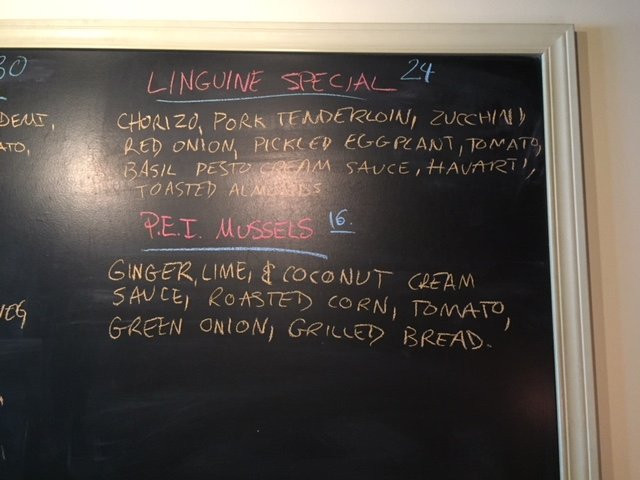 30
DEMI,
LINGUINE SPECIAL 24
CHORIZO, PORK TENDERLOIN, ZUCCHINI,
RED ONION, PICKLED EGGPLANT, TOMATO,
BASIL PESTO CREAM SAUCE, HAVARTI,
TOASTED ALMONDS
P.E.I. MUSSELS 16.
GINGER, LIME, & COCONUT CREAM
SAUCE, ROASTED CORN, TOMATO,
GREEN ONION, GRILLED BREAD.